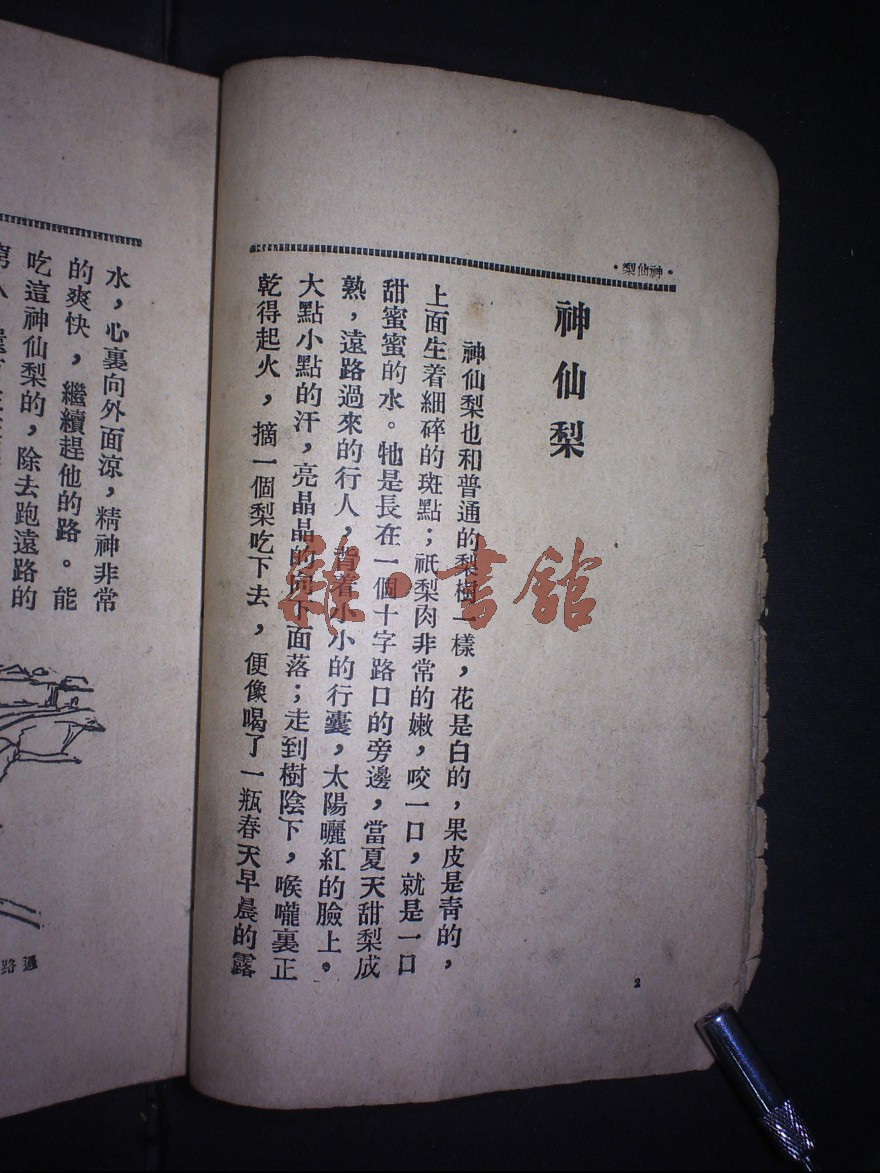 ·神仙梨·
神仙梨
神仙梨也和普通的梨樹一樣，花是白的，果皮是靑的，
上面生着細碎的斑點；祇梨肉非常的嫩，咬一口，就是一口
甜蜜蜜的水。牠是長在一個十字路口的旁邊，當夏天甜梨成
熟，遠路過來的行人，背着小小的行囊，太陽曬紅的臉上。
大點小點的汗，亮晶晶的向下面落；走到樹陰下，喉嚨裏正
乾得起火，摘一個梨吃下去，便像喝了一瓶春天早晨的露
2
水，心裏向外面涼，精神非常
的爽快，繼續趕他的路。能
吃這神仙梨的，除去跑遠路的
過路
雜·書館